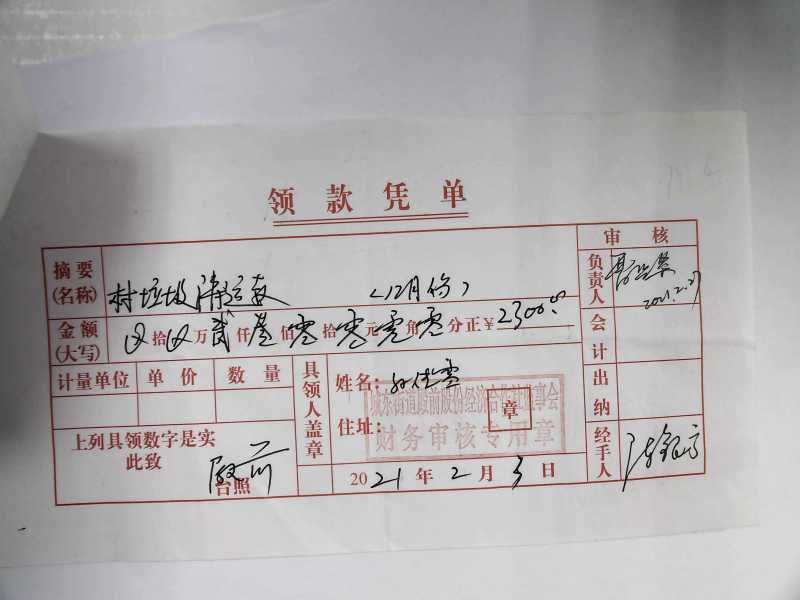 领款凭单
审核
摘要(名称) 村垃圾清运款 (12月份)
负责人 2021.2.27
金额(大写) 拾 万 贰仟 佰 零拾 零元 零角 零分正 ¥ 2300.00
会计
计量单位 单价 数量
具领人盖章
姓名:
出纳
城东街道殿前股份经济合作社监事会
财务审核专用章
章
住址:
上列具领数字是实
此致
殿前
台照
2021年2月3日
经手人